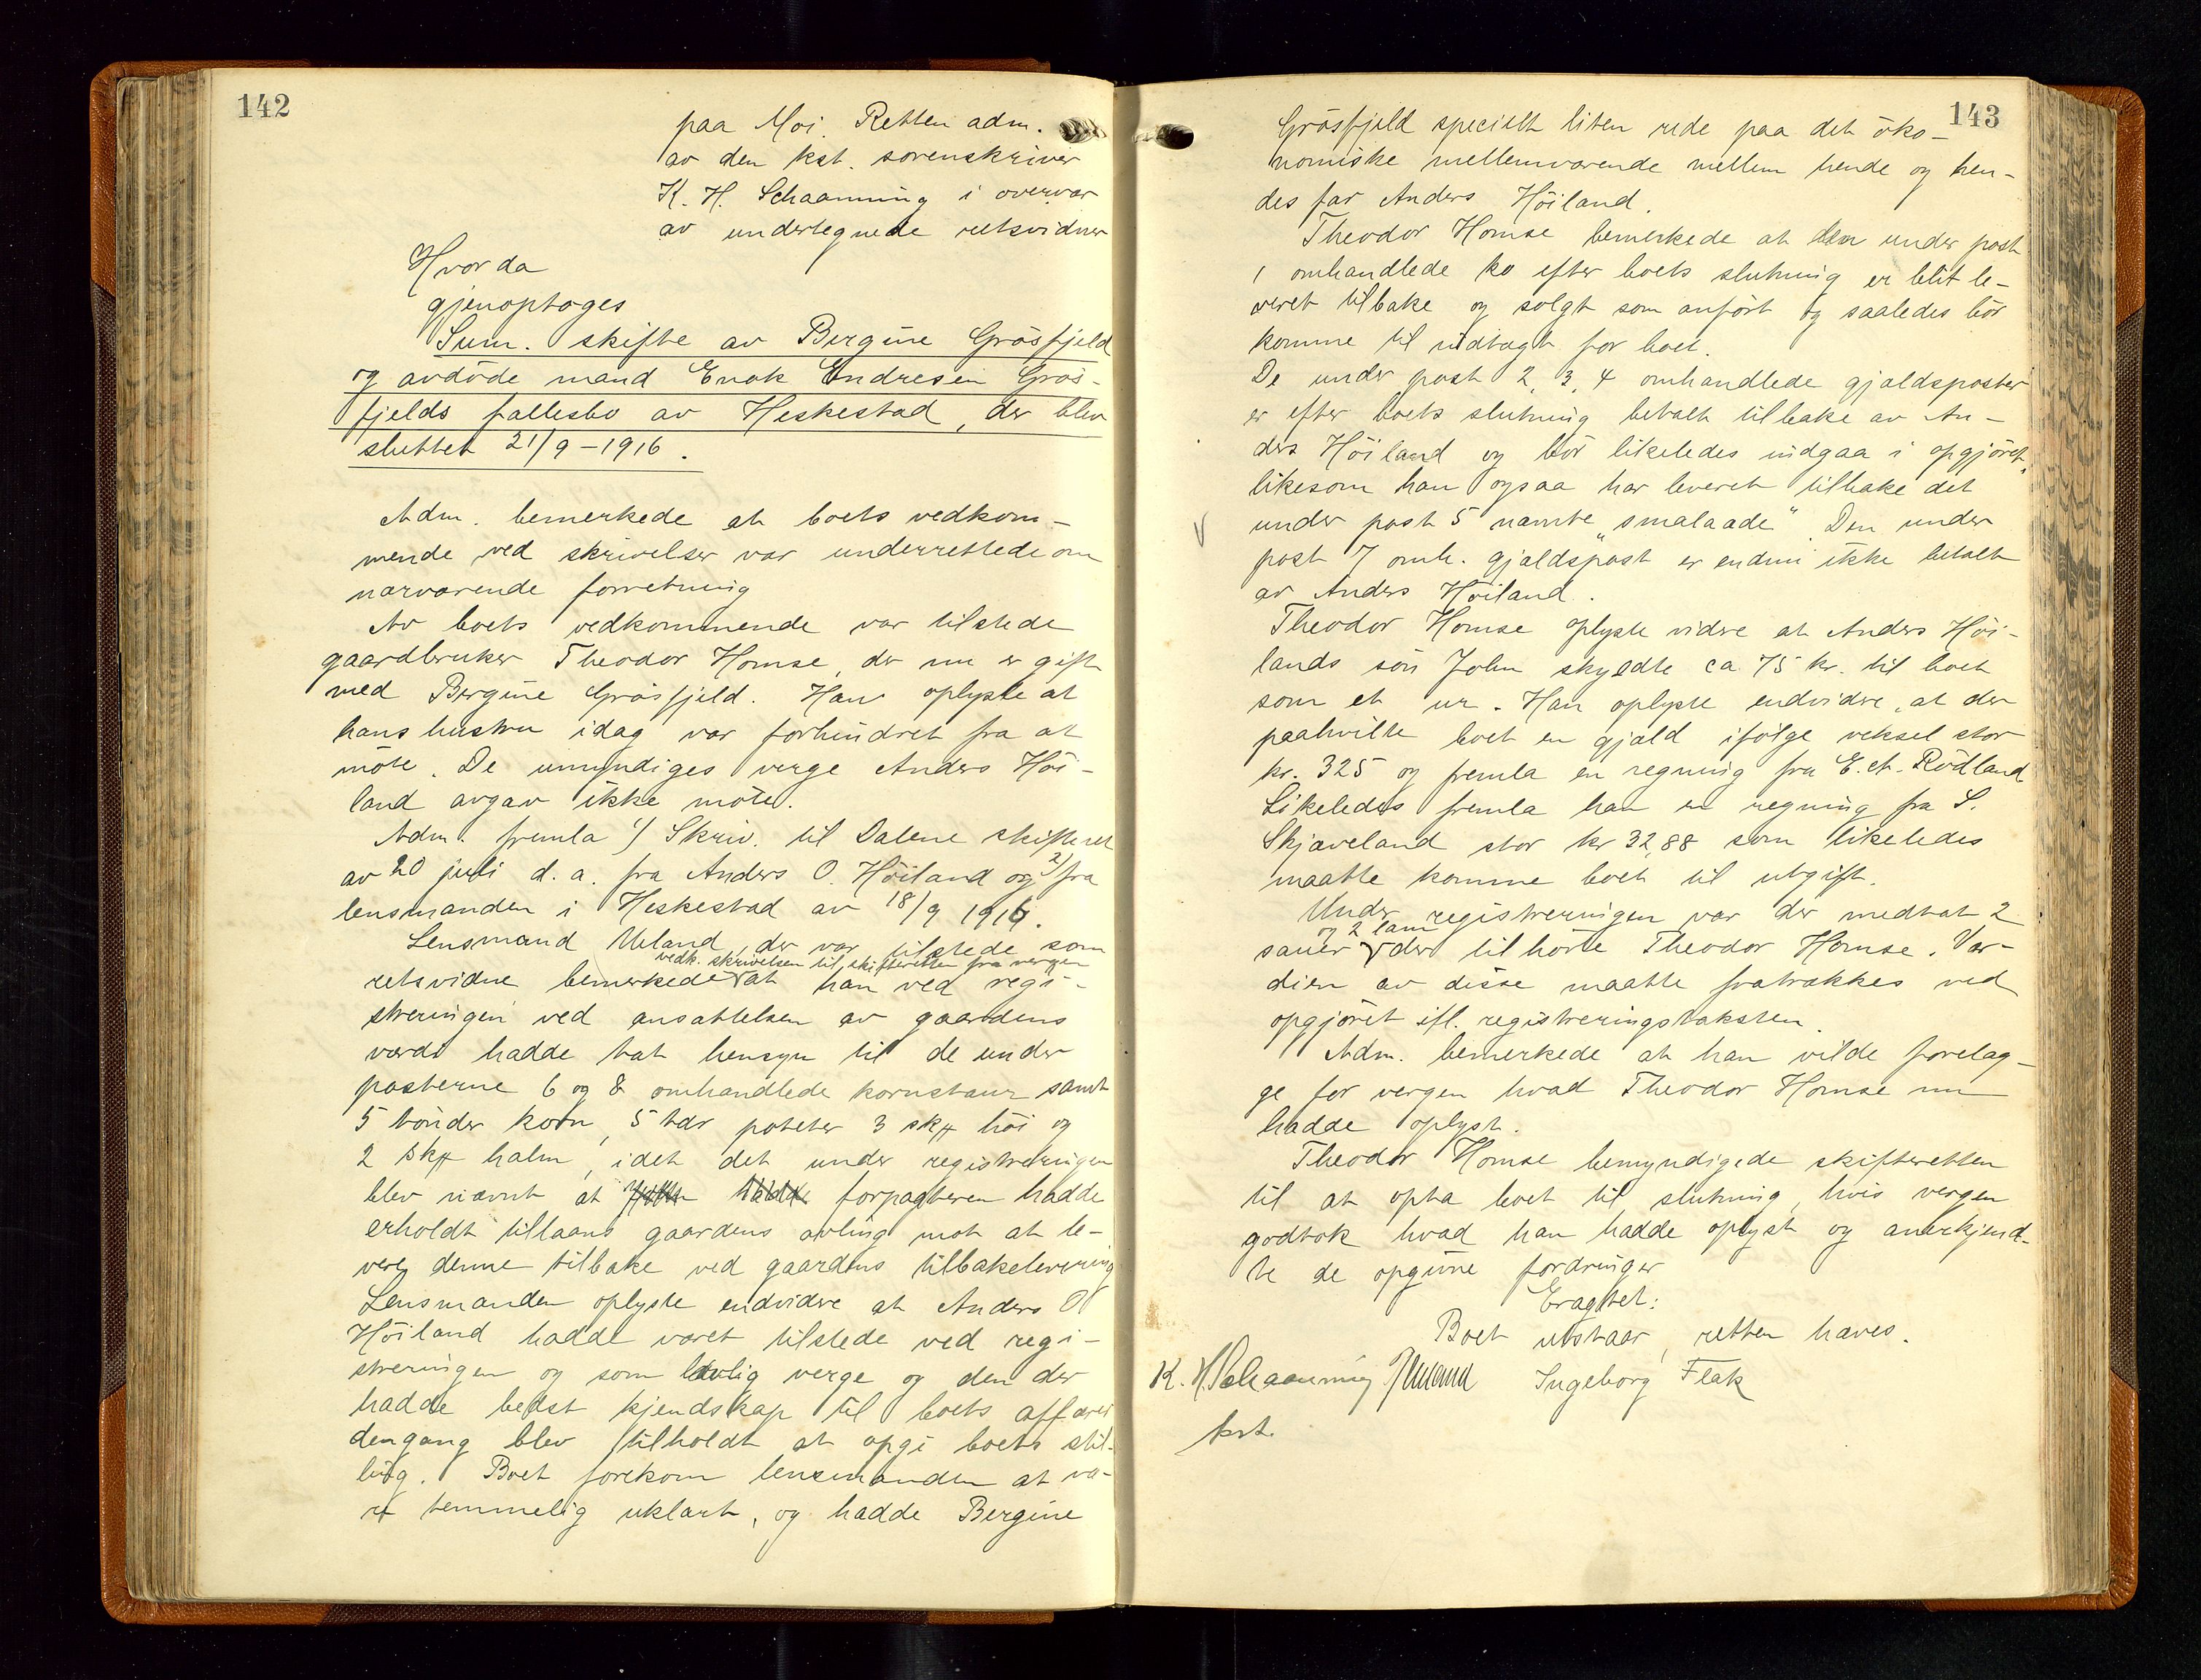 142
paa Moi. Retten adm.
av den kst. sorenskriver
K. H. Schaanning i overvær
av undertegnede retsvidner
Hvor da
gjenoptoges
Sum. skifte av Bergine Grösfjeld
og avdöde mand Enok Endresen Grös-
fjelds fællesbo av Heskestad, der blev
sluttet 21/9-1916.
Adm. bemerkede at boets vedkom-
mende ved skrivelser var underrettede om
nærværende forretning
Av boets vedkommende var tilstede
gaardbruker Theodor Homse, der nu er gift
med Bergine Grösfjeld. Han oplyste at
hans hustru idag var forhindret fra at
möte. De umyndiges verge Anders Höi-
land avgav ikke möte.
Adm. fremla 1) Skriv. til Dalene skifteret
av 20 juli d.a. fra Anders O. Höiland og 2) fra
lensmanden i Heskestad av 18/9 1916.
Lensmand Ueland, der var tilstede som
vedk. skrivelsen til skifteretten fra vergen
retsvidne bemerkede at han ved regi-
streringen ved ansættelsen av gaardens
værdi hadde tat hensyn til de under
posterne 6 og 8 omhandlede kornstaur samt
5 tönder korn, 5 tdr poteter 3 sk℔ höi og
2 sk℔ halm, idet det under registreringen
blev nævnt at forpagteren hadde
erholdt tillaans gaardens avling mot at le-
vere denne tilbake ved gaardens tilbakelevering
Lensmanden oplyste endvidre at Anders O
Höiland hadde været tilstede ved regi-
streringen og som lovlig verge og den der
hadde bedst kjendskap til boets affærer
dengang blev tilholdt at opgi boets stil-
ling. Boet forekom lensmanden at væ-
re temmelig uklart, og hadde Bergine
143
Grösfjeld specielt liten rede paa det öko-
nomiske mellemværende mellem hende og hen-
des far Anders Höiland.
Theodor Homse bemerkede at den under post
1 omhandlede ko efter boets slutning er blit le-
veret tilbake og solgt som anfört og saaledes bör
komme til indtægt for boet.
De under post 2, 3, 4 omhandlede gjældsposter
er efter boets slutning betalt tilbake av An-
ders Höiland og bör likeledes indgaa i opgjöret,
likesom han ogsaa har leveret tilbake det
under post 5 nævnte "smalaade". Den under
post 7 omh. gjældspost er endnu ikke betalt
av Anders Höiland.
Theodor Homse oplyste videre at Anders Höi-
lands sön John skyldte ca 75 kr. til boet
som et ur. Han oplyste endvidre, at der
paahvilte boet en gjæld ifölge veksel stor
kr. 325 og fremla en regning fra E. A. Rödland
Likeledes fremla han en regning fra S.
Skjæveland stor kr 32,88 som likeledes
maatte komme boet til utgift.
Under registreringen var der medtat 2
og 2 lam
sauer der tilhörte Theodor Homse. Vær-
dien av disse maatte fratrækkes ved
opgjöret ifl. registreringstaksten.
Adm. bemerkede at han vilde forelæg-
ge for vergen hvad Theodor Homse nu
hadde oplyst.
Theodor Homse bemyndigede skifteretten
til at opta boet til slutning, hvis vergen
godtok hvad han hadde oplyst og anerkjend-
te de opgivne fordringer
Eragtet:
Boet utstaar, retten hæves.
K. H. Schaanning Ueland Ingeborg Flak
kst.